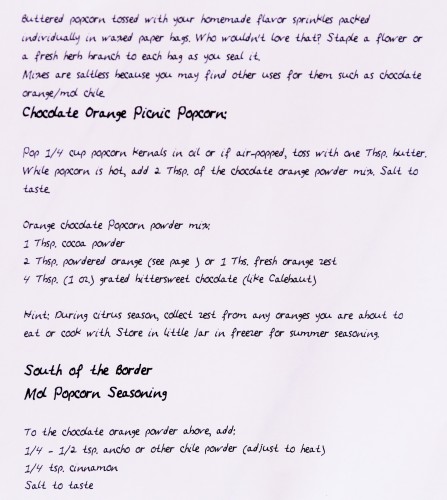 Buttered popcorn tossed with your homemade flavor sprinkles packed
individually in waxed paper bags. Who wouldn't love that? Staple a flower or
a fresh herb branch to each bag as you seal it.
Mixes are saltless because you may find other uses for them such as chocolate
orange/mol chile.
Chocolate Orange Picnic Popcorn:
Pop 1/4 cup popcorn kernals in oil or if air-popped, toss with one Tbsp. butter.
While popcorn is hot, add 2 Tbsp. of the chocolate orange powder mix. Salt to
taste.
Orange chocolate Popcorn powder mix:
1 Tbsp. cocoa powder
2 Tbsp. powdered orange (see page ) or 1 Tbs. fresh orange zest
4 Tbsp. (1 oz.) grated bittersweet chocolate (like Calebaut)
Hint: During citrus season, collect zest from any oranges you are about to
eat or cook with. Store in little jar in freezer for summer seasoning.
South of the Border
Mol Popcorn Seasoning
To the chocolate orange powder above, add:
1/4 - 1/2 tsp. ancho or other chile powder (adjust to heat)
1/4 tsp. cinnamon
Salt to taste